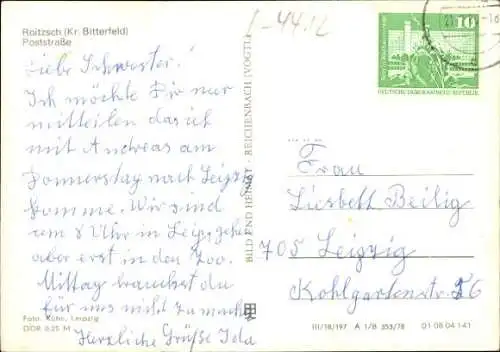 Roitzsch (Kr. Bitterfeld)
Poststraße
Liebe Schwester!
Ich möchte Dir nur
mitteilen das ich
mit Andreas am
Donnerstag nach Leipzig
komme. Wir sind
um 8 Uhr in Leipz. gehe
aber erst in den Zoo.
Mittag brauchst du
für uns nicht zu machen
Herzliche Grüße Ida
Foto: Kühn, Leipzig
DDR 0,25 M
BILD UND HEIMAT · REICHENBACH (VOGTL)
10
DEUTSCHE DEMOKRATISCHE REPUBLIK
Frau
Liesbett Beilig
705 Leipzig
Kohlgartenstr.
III/18/197 A 1/B 353/78 01 08 04 141